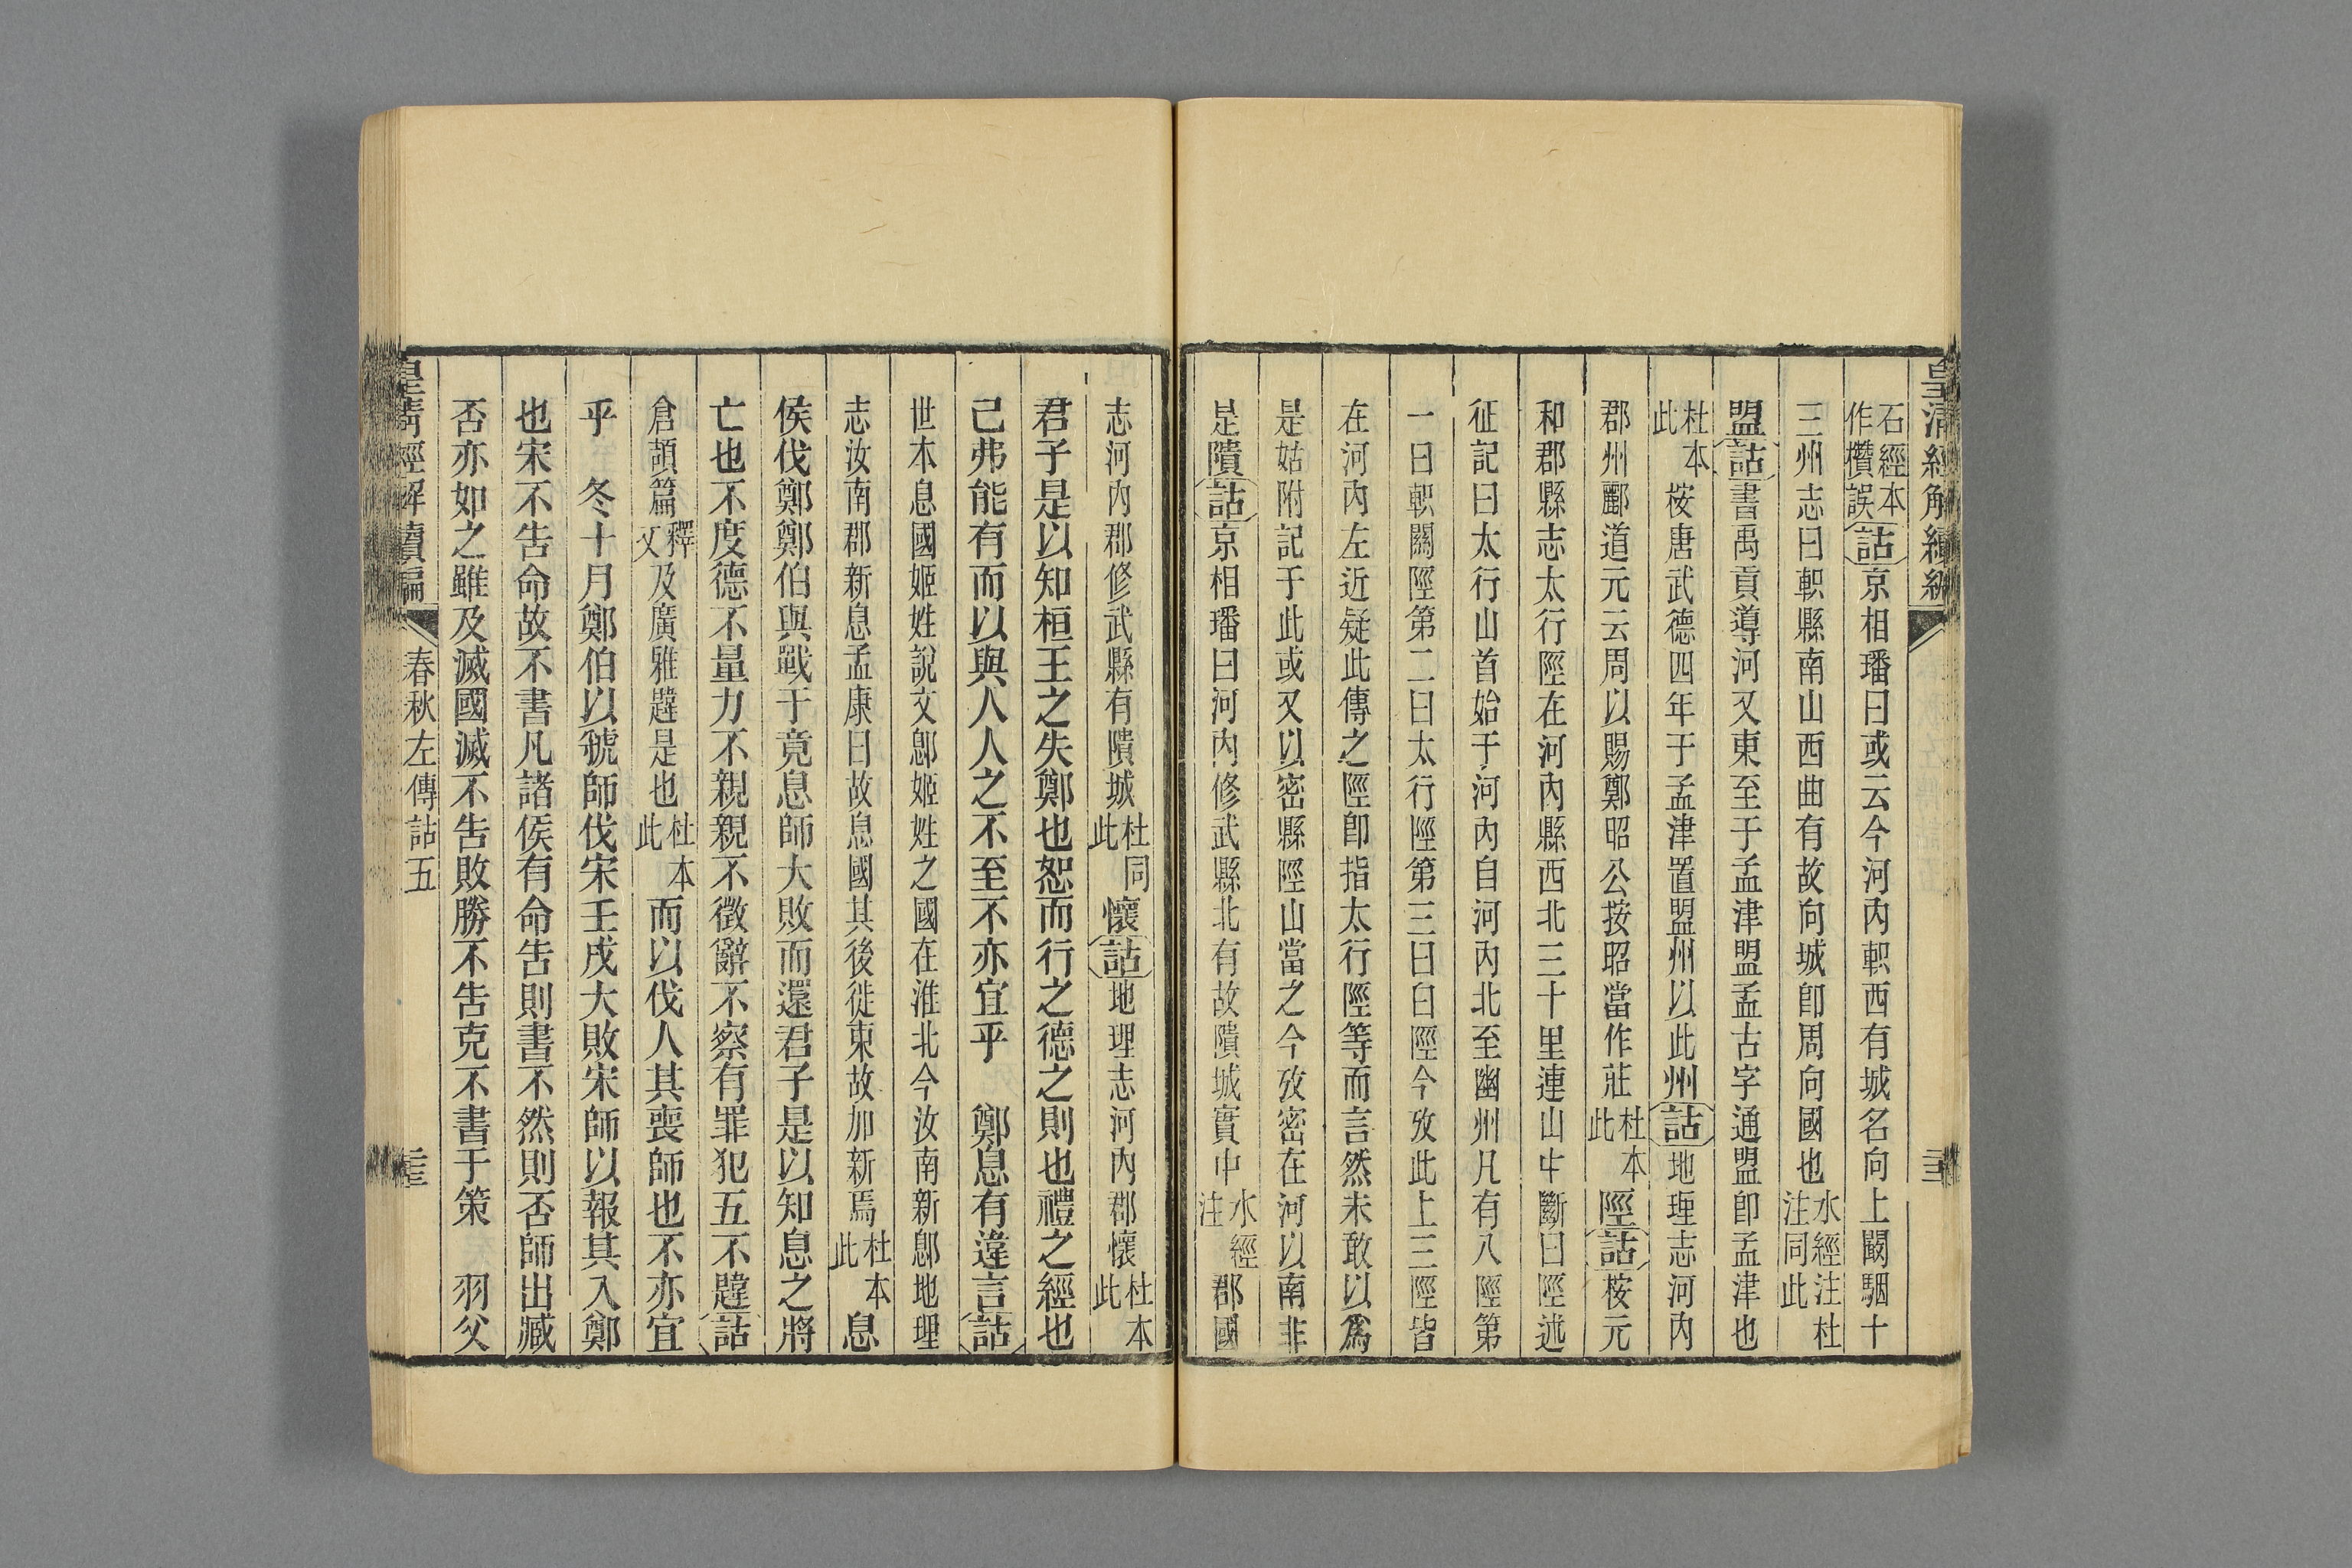 皇清經解續編
石經本作欑誤詁京相璠曰或云今河內軹西有城名向上闞駰十
三州志曰軹縣南山西曲有故向城卽周向國也水經注杜注同此
盟詁書禹貢導河又東至于孟津盟孟古字通盟卽孟津也
杜本此桉唐武德四年于孟津置盟州以此州詁地理志河內
郡州酈道元云周以賜鄭昭公按昭當作莊杜本此陘詁桉元
和郡縣志太行陘在河內縣西北三十里連山中斷曰陘述
征記曰太行山首始于河內自河內北至幽州凡有八陘第
一曰軹關陘第二曰太行陘第三曰白陘今攷此上三陘皆
在河內左近疑此傳之陘卽指太行陘等而言然未敢以爲
是姑附記于此或又以密縣陘山當之今攷密在河以南非
是隤詁京相璠曰河內修武縣北有故隤城實中水經注郡國
志河內郡修武縣有隤城杜同此懷詁地理志河內郡懷杜本此
君子是以知桓王之失鄭也恕而行之德之則也禮之經也
己弗能有而以與人人之不至不亦宜乎　鄭息有違言詁
世本息國姬姓說文鄎姬姓之國在淮北今汝南新鄎地理
志汝南郡新息孟康曰故息國其後徙東故加新焉杜本此息
侯伐鄭鄭伯與戰于竟息師大敗而還君子是以知息之將
亡也不度德不量力不親親不徵辭不察有罪犯五不韙詁
倉頡篇釋文及廣雅韙是也杜本此而以伐人其喪師也不亦宜
乎　冬十月鄭伯以虢師伐宋壬戌大敗宋師以報其入鄭
也宋不告命故不書凡諸侯有命告則書不然則否師出臧
否亦如之雖及滅國滅不告敗勝不告克不書于策　羽父
皇清經解續編　春秋左傳詁五